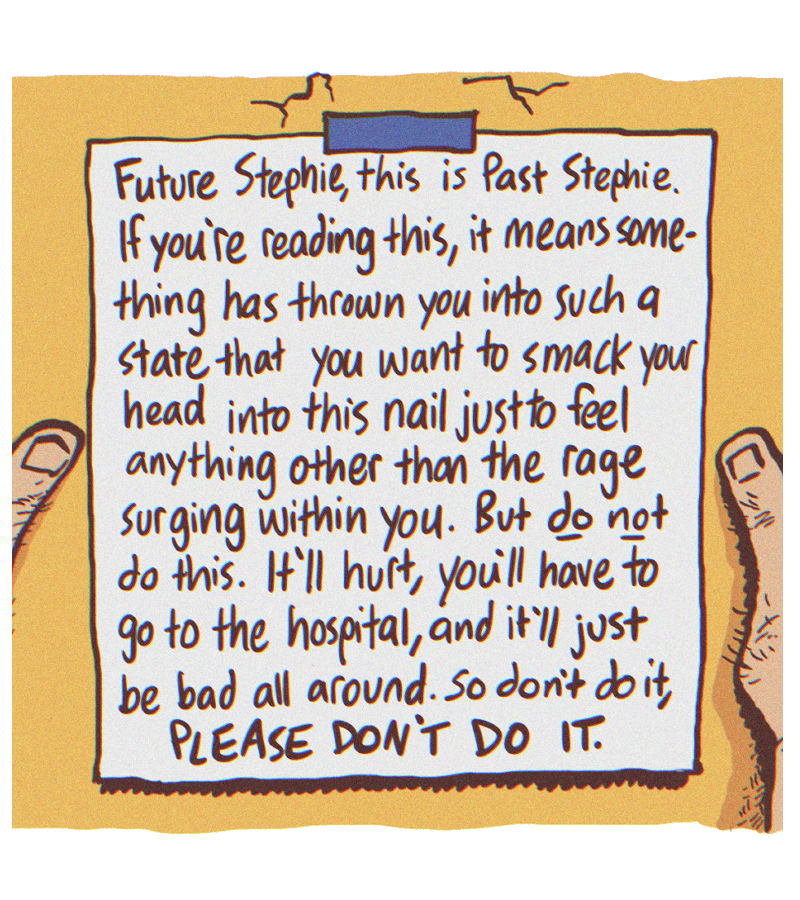 Future Stephie, this is Past Stephie.
If you're reading this, it means some-
thing has thrown you into such a
state that you want to smack your
head into this nail just to feel
anything other than the rage
surging within you. But do not
do this. It'll hurt, you'll have to
go to the hospital, and it'll just
be bad all around. So don't do it,
PLEASE DON'T DO IT.